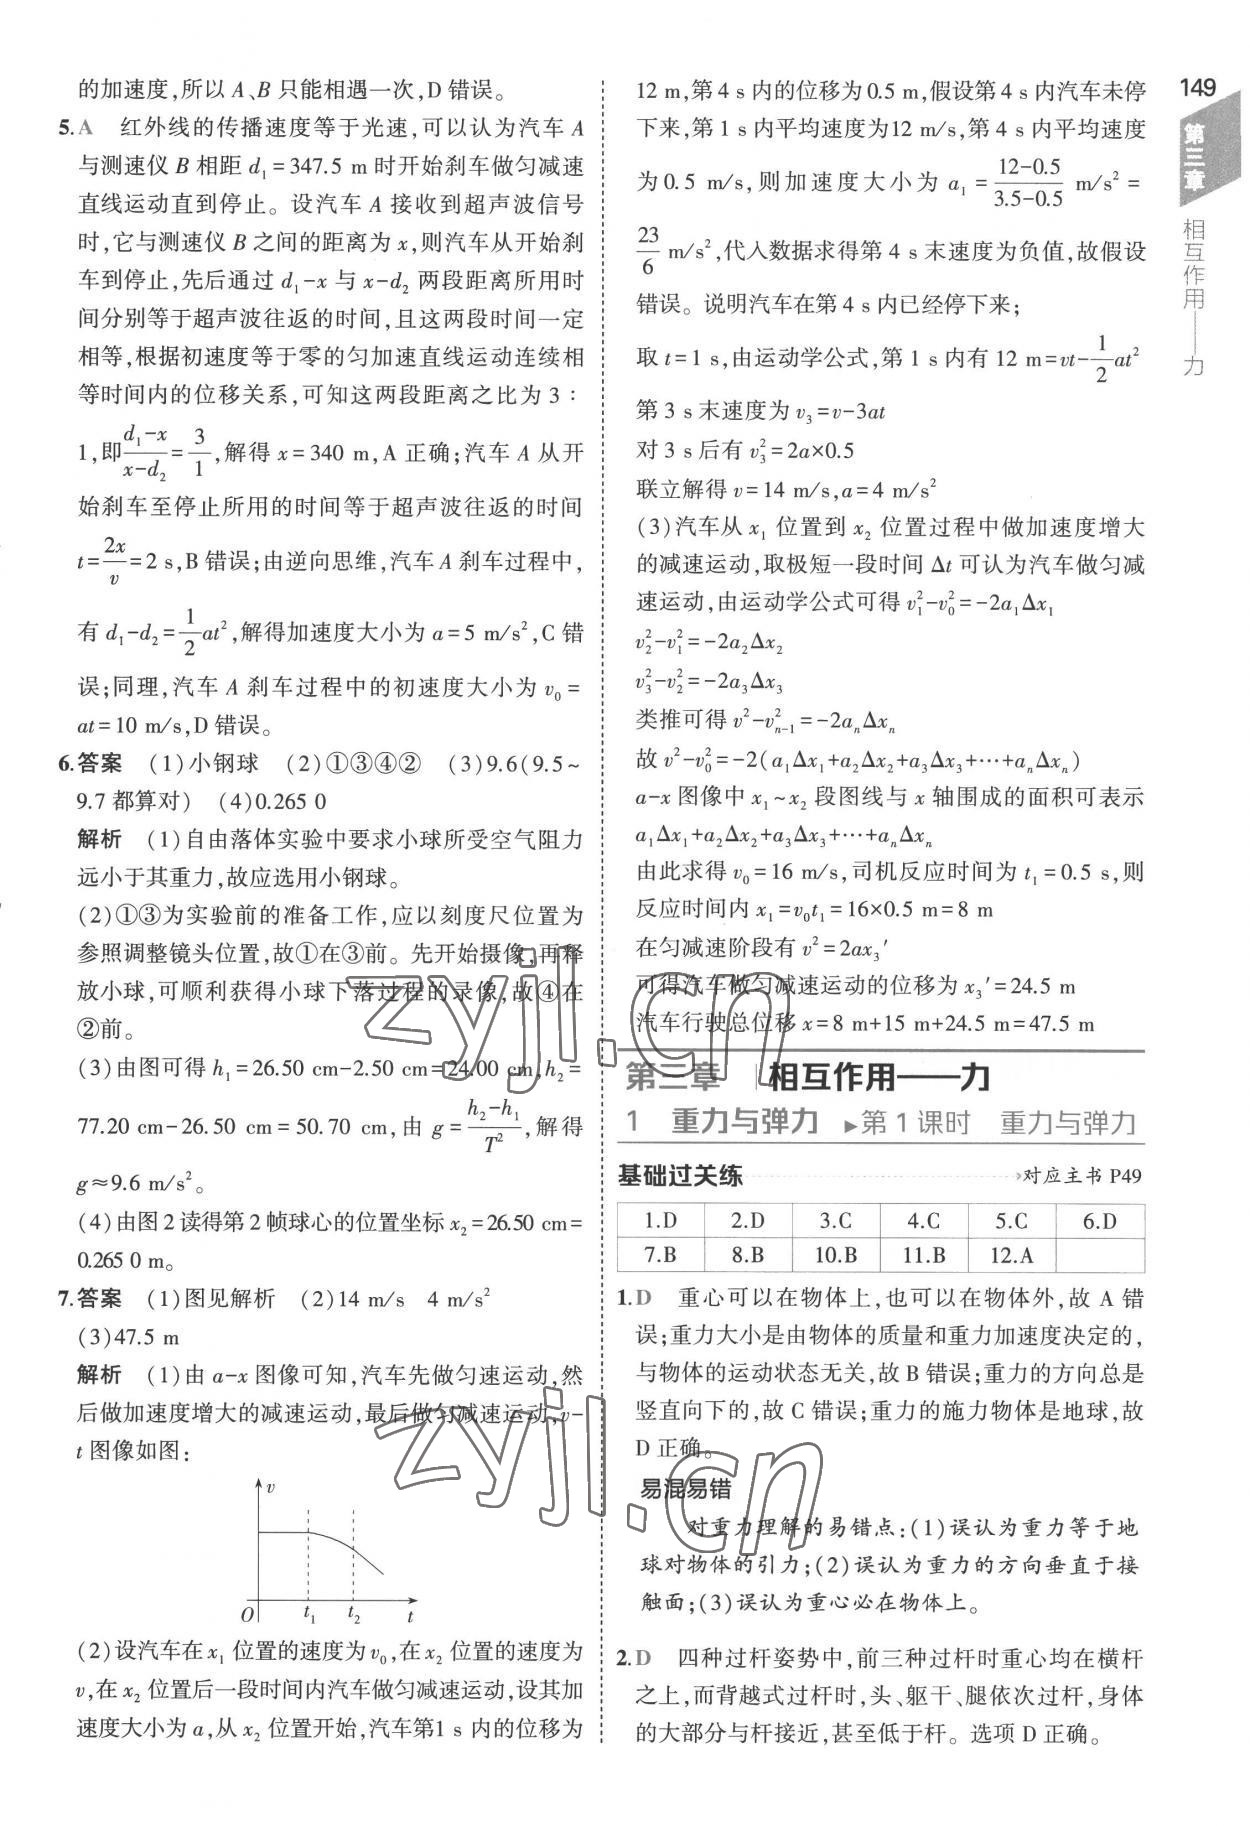 的加速度,所以 A、B 只能相遇一次,D 错误。
5.A 红外线的传播速度等于光速,可以认为汽车 A
与测速仪 B 相距 d₁=347.5 m 时开始刹车做匀减速
直线运动直到停止。设汽车 A 接收到超声波信号
时,它与测速仪 B 之间的距离为 x,则汽车从开始刹
车到停止,先后通过 d₁-x 与 x-d₂ 两段距离所用时
间分别等于超声波往返的时间,且这两段时间一定
相等,根据初速度等于零的匀加速直线运动连续相
等时间内的位移关系,可知这两段距离之比为 3∶
1,即(d₁-x)/(x-d₂)=3/1,解得 x=340 m,A 正确;汽车 A 从开
始刹车至停止所用的时间等于超声波往返的时间
t=2x/v=2 s,B 错误;由逆向思维,汽车 A 刹车过程中,
有 d₁-d₂=1/2at²,解得加速度大小为 a=5 m/s²,C 错
误;同理,汽车 A 刹车过程中的初速度大小为 v₀=
at=10 m/s,D 错误。
6.答案 (1)小钢球 (2)①③④② (3)9.6(9.5~
9.7 都算对) (4)0.265 0
解析 (1)自由落体实验中要求小球所受空气阻力
远小于其重力,故应选用小钢球。
(2)①③为实验前的准备工作,应以刻度尺位置为
参照调整镜头位置,故①在③前。先开始摄像,再释
放小球,可顺利获得小球下落过程的录像,故④在
②前。
(3)由图可得 h₁=26.50 cm-2.50 cm=24.00 cm,h₂=
77.20 cm-26.50 cm=50.70 cm,由 g=(h₂-h₁)/T²,解得
g≈9.6 m/s²。
(4)由图 2 读得第 2 帧球心的位置坐标 x₂=26.50 cm=
0.265 0 m。
7.答案 (1)图见解析 (2)14 m/s 4 m/s²
(3)47.5 m
解析 (1)由 a-x 图像可知,汽车先做匀速运动,然
后做加速度增大的减速运动,最后做匀减速运动,v-
t 图像如图:
v
O t₁ t₂ t
(2)设汽车在 x₁ 位置的速度为 v₀,在 x₂ 位置的速度为
v,在 x₂ 位置后一段时间内汽车做匀减速运动,设其加
速度大小为 a,从 x₂ 位置开始,汽车第1 s 内的位移为
12 m,第 4 s 内的位移为0.5 m,假设第 4 s 内汽车未停
下来,第 1 s 内平均速度为12 m/s,第 4 s 内平均速度
为 0.5 m/s,则加速度大小为 a₁=(12-0.5)/(3.5-0.5) m/s²=
23/6 m/s²,代入数据求得第 4 s 末速度为负值,故假设
错误。说明汽车在第 4 s 内已经停下来;
取 t=1 s,由运动学公式,第 1 s 内有 12 m=vt-1/2at²
第 3 s 末速度为 v₃=v-3at
对 3 s 后有 v₃²=2a×0.5
联立解得 v=14 m/s,a=4 m/s²
(3)汽车从 x₁ 位置到 x₂ 位置过程中做加速度增大
的减速运动,取极短一段时间 Δt 可认为汽车做匀减
速运动,由运动学公式可得 v₁²-v₀²=-2a₁Δx₁
v₂²-v₁²=-2a₂Δx₂
v₃²-v₂²=-2a₃Δx₃
类推可得 v²-vₙ₋₁²=-2aₙΔxₙ
故 v²-v₀²=-2(a₁Δx₁+a₂Δx₂+a₃Δx₃+…+aₙΔxₙ)
a-x 图像中 x₁~x₂ 段图线与 x 轴围成的面积可表示
a₁Δx₁+a₂Δx₂+a₃Δx₃+…+aₙΔxₙ
由此求得 v₀=16 m/s,司机反应时间为 t₁=0.5 s,则
反应时间内 x₁=v₀t₁=16×0.5 m=8 m
在匀减速阶段有 v²=2ax₃′
可得汽车做匀减速运动的位移为 x₃′=24.5 m
汽车行驶总位移 x=8 m+15 m+24.5 m=47.5 m
第三章 相互作用——力
1 重力与弹力 ▶第 1 课时 重力与弹力
基础过关练 对应主书 P49
1.D 2.D 3.C 4.C 5.C 6.D
7.B 8.B 10.B 11.B 12.A
1.D 重心可以在物体上,也可以在物体外,故 A 错
误;重力大小是由物体的质量和重力加速度决定的,
与物体的运动状态无关,故 B 错误;重力的方向总是
竖直向下的,故 C 错误;重力的施力物体是地球,故
D 正确。
易混易错
对重力理解的易错点:(1)误认为重力等于地
球对物体的引力;(2)误认为重力的方向垂直于接
触面;(3)误认为重心必在物体上。
2.D 四种过杆姿势中,前三种过杆时重心均在横杆
之上,而背越式过杆时,头、躯干、腿依次过杆,身体
的大部分与杆接近,甚至低于杆。选项 D 正确。
149
第三章
相互作用——力
zyjl.cn
zyjl.cn